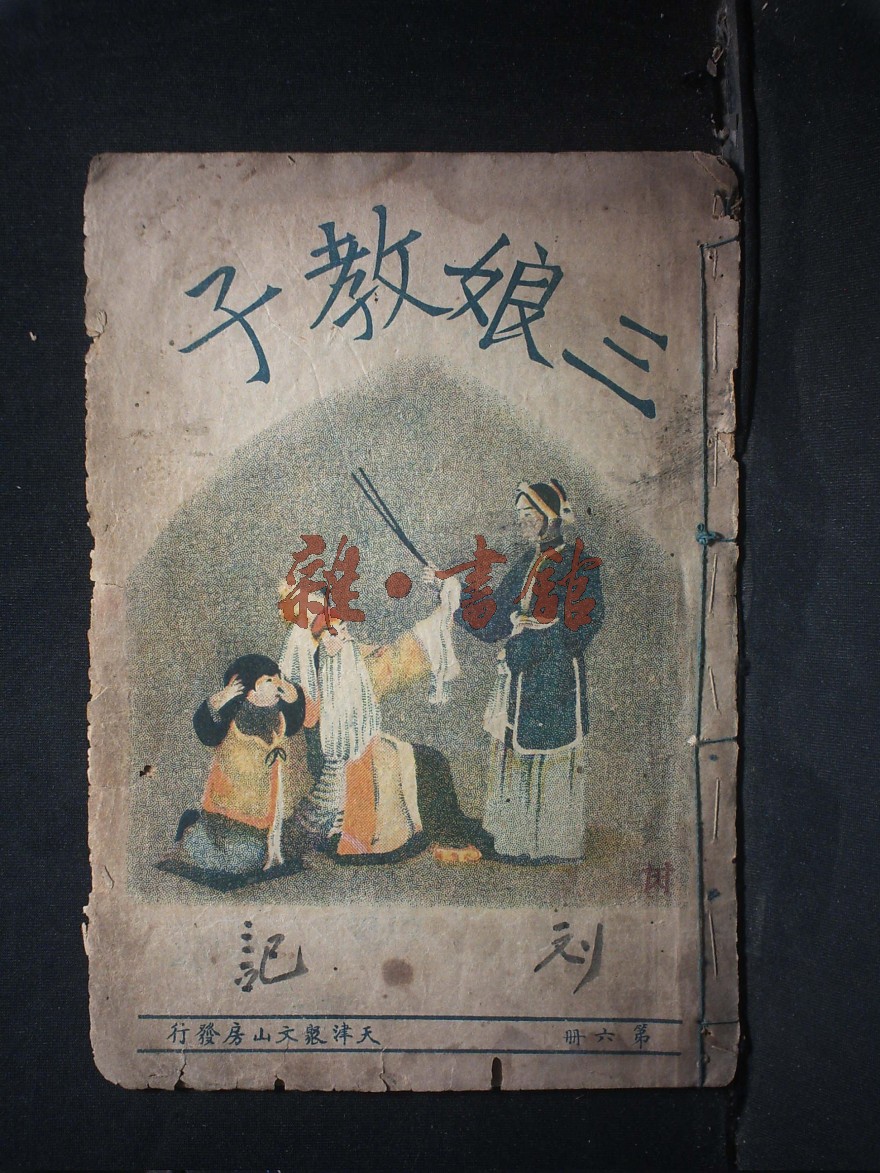 三娘教子
雜·書館
刘記
第六冊
天津聚文山房發行